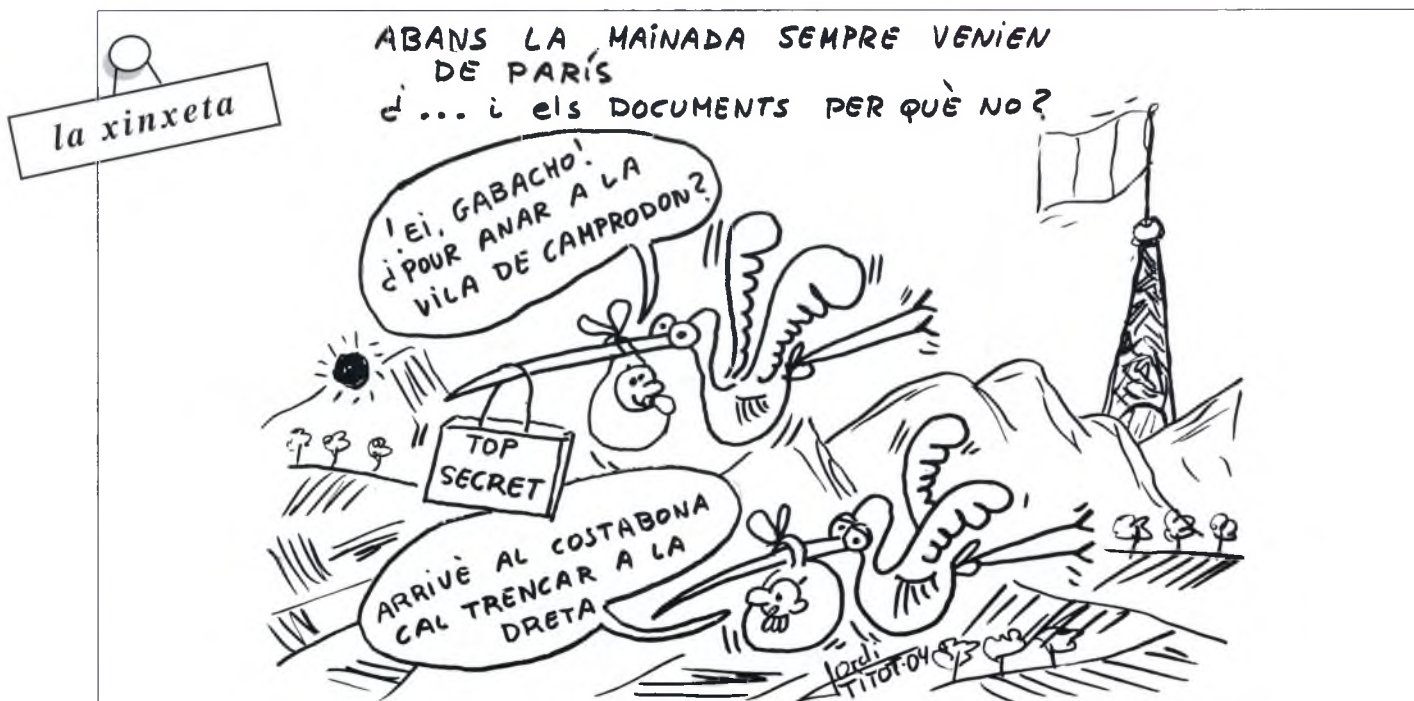 la xinxeta
ABANS LA MAINADA SEMPRE VENIEN
DE PARÍS
¿... i els DOCUMENTS PER QUÈ NO?
¡EI, GABACHO!
¿POUR ANAR A LA
VILA DE CAMPRODON?
TOP
SECRET
ARRIVÈ AL COSTABONA
CAL TRENCAR A LA
DRETA
Jordi
TITOT·04